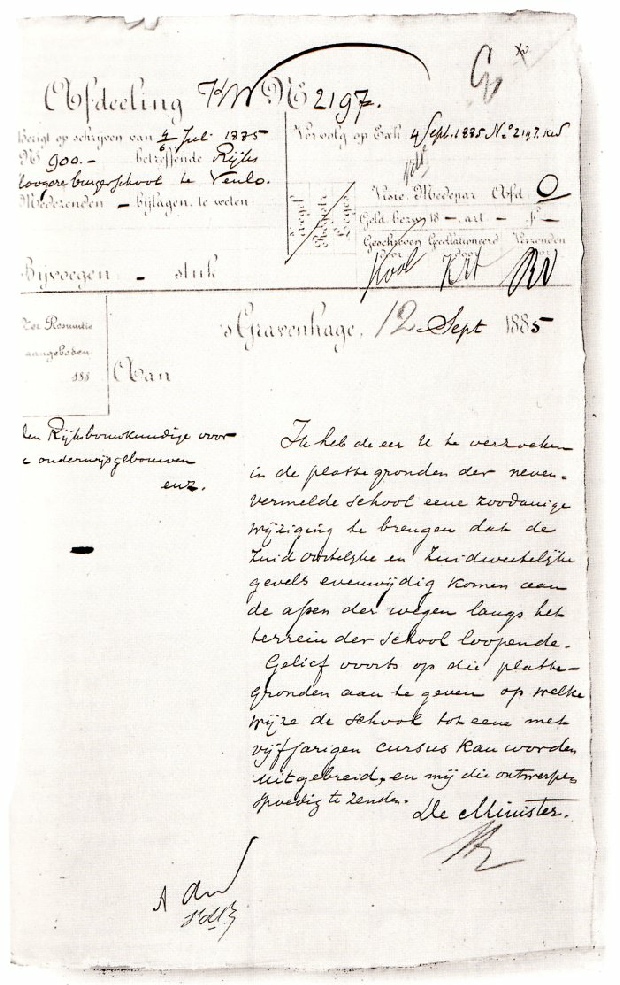 Afdeeling KW No 2197.
Berigt op schrijven van 4 Juli 1885
No 900.- betreffende Rijks
hoogere burgerschool te Venlo.
Mede zenden - bijlagen, te weten
Bijvoegen - stuk
Vervolg op Exh. 4 Sept. 1885 No 2197. KW
Visie. Medepar Afd. O
Geld. bezw. 18 - art - f -
Geschreven Gecollationeerd Verzonden
door
's Gravenhage, 12 Sept 1885
Ter Resumtie
aangeboden
188
Aan
den Rijksbouwkundige voor
de onderwijsgebouwen
enz.
Ik heb de eer U te verzoeken
in de platte gronden der neven-
vermelde school eene zoodanige
wijziging te brengen dat de
Zuid oostelijke en Zuidwestelijke
gevels evenwijdig komen aan
de assen der wegen langs het
terrein der school loopende.
Gelief voorts op die platte-
gronden aan te geven op welke
wijze de school tot eene met
vijfjarigen cursus kan worden
uitgebreid, en mij die ontwerpen
spoedig te zenden.
De Minister.